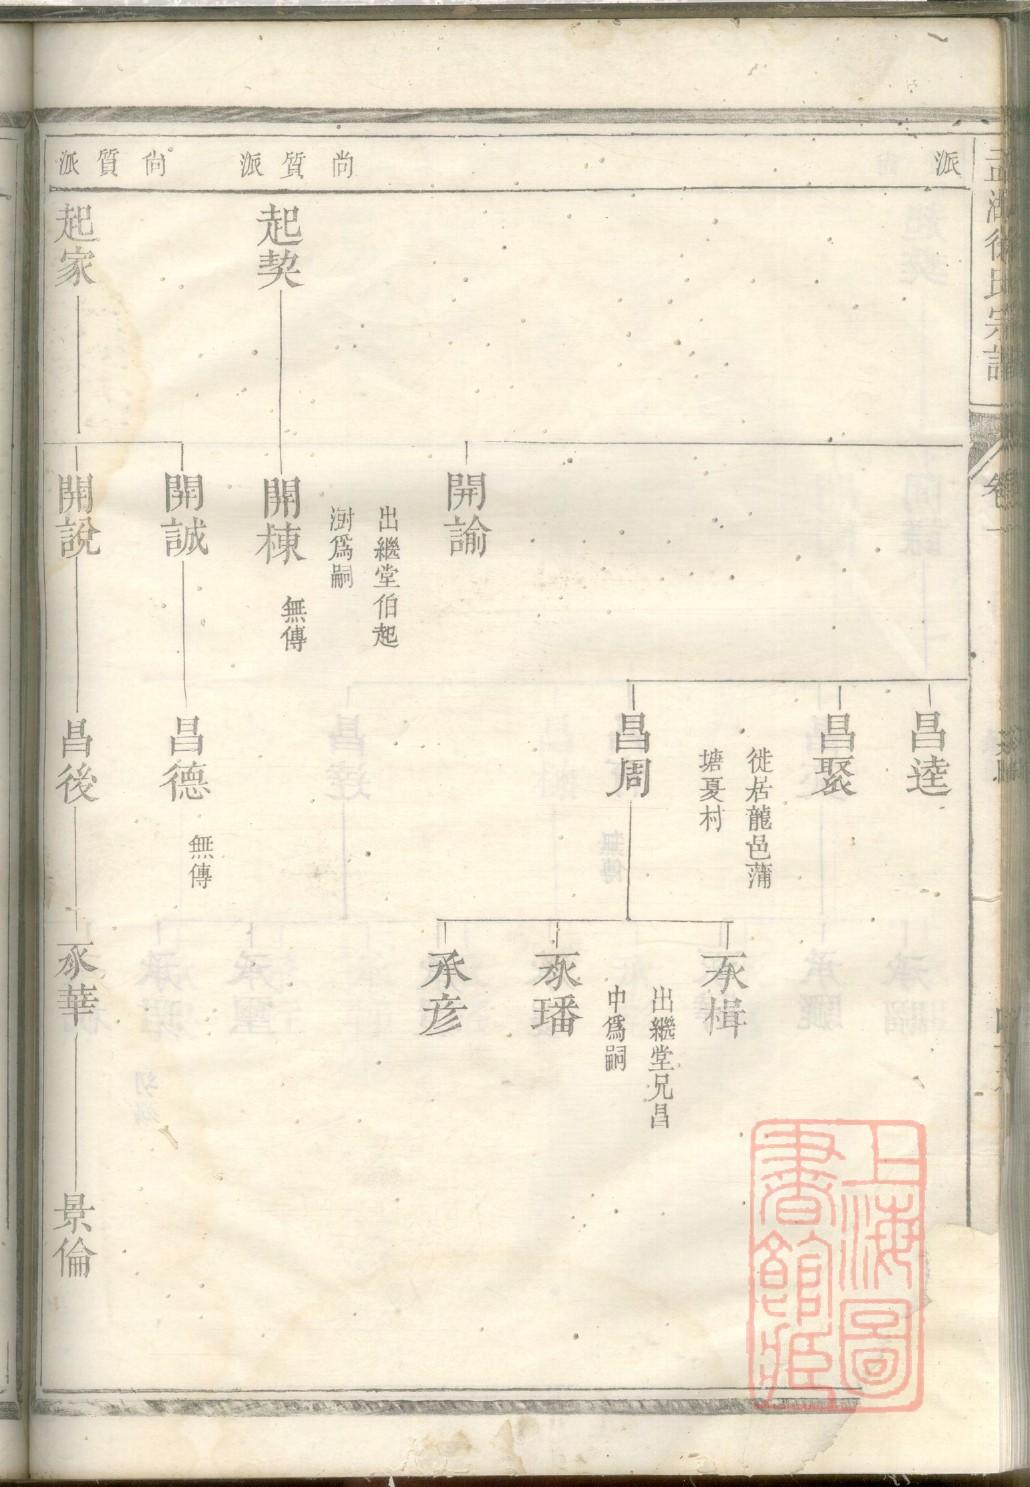 孟湖徐氏宗譜
卷一
派
尚質派
尚質派
起契
起家
開諭
出繼堂伯起
澍爲嗣
開棟
無傳
開誠
開說
昌逵
昌聚
徙居龍邑蒲
塘夏村
昌周
昌德
無傳
昌後
承楫
出繼堂兄昌
中爲嗣
承璠
承彦
承華
景倫
上海圖
書館藏